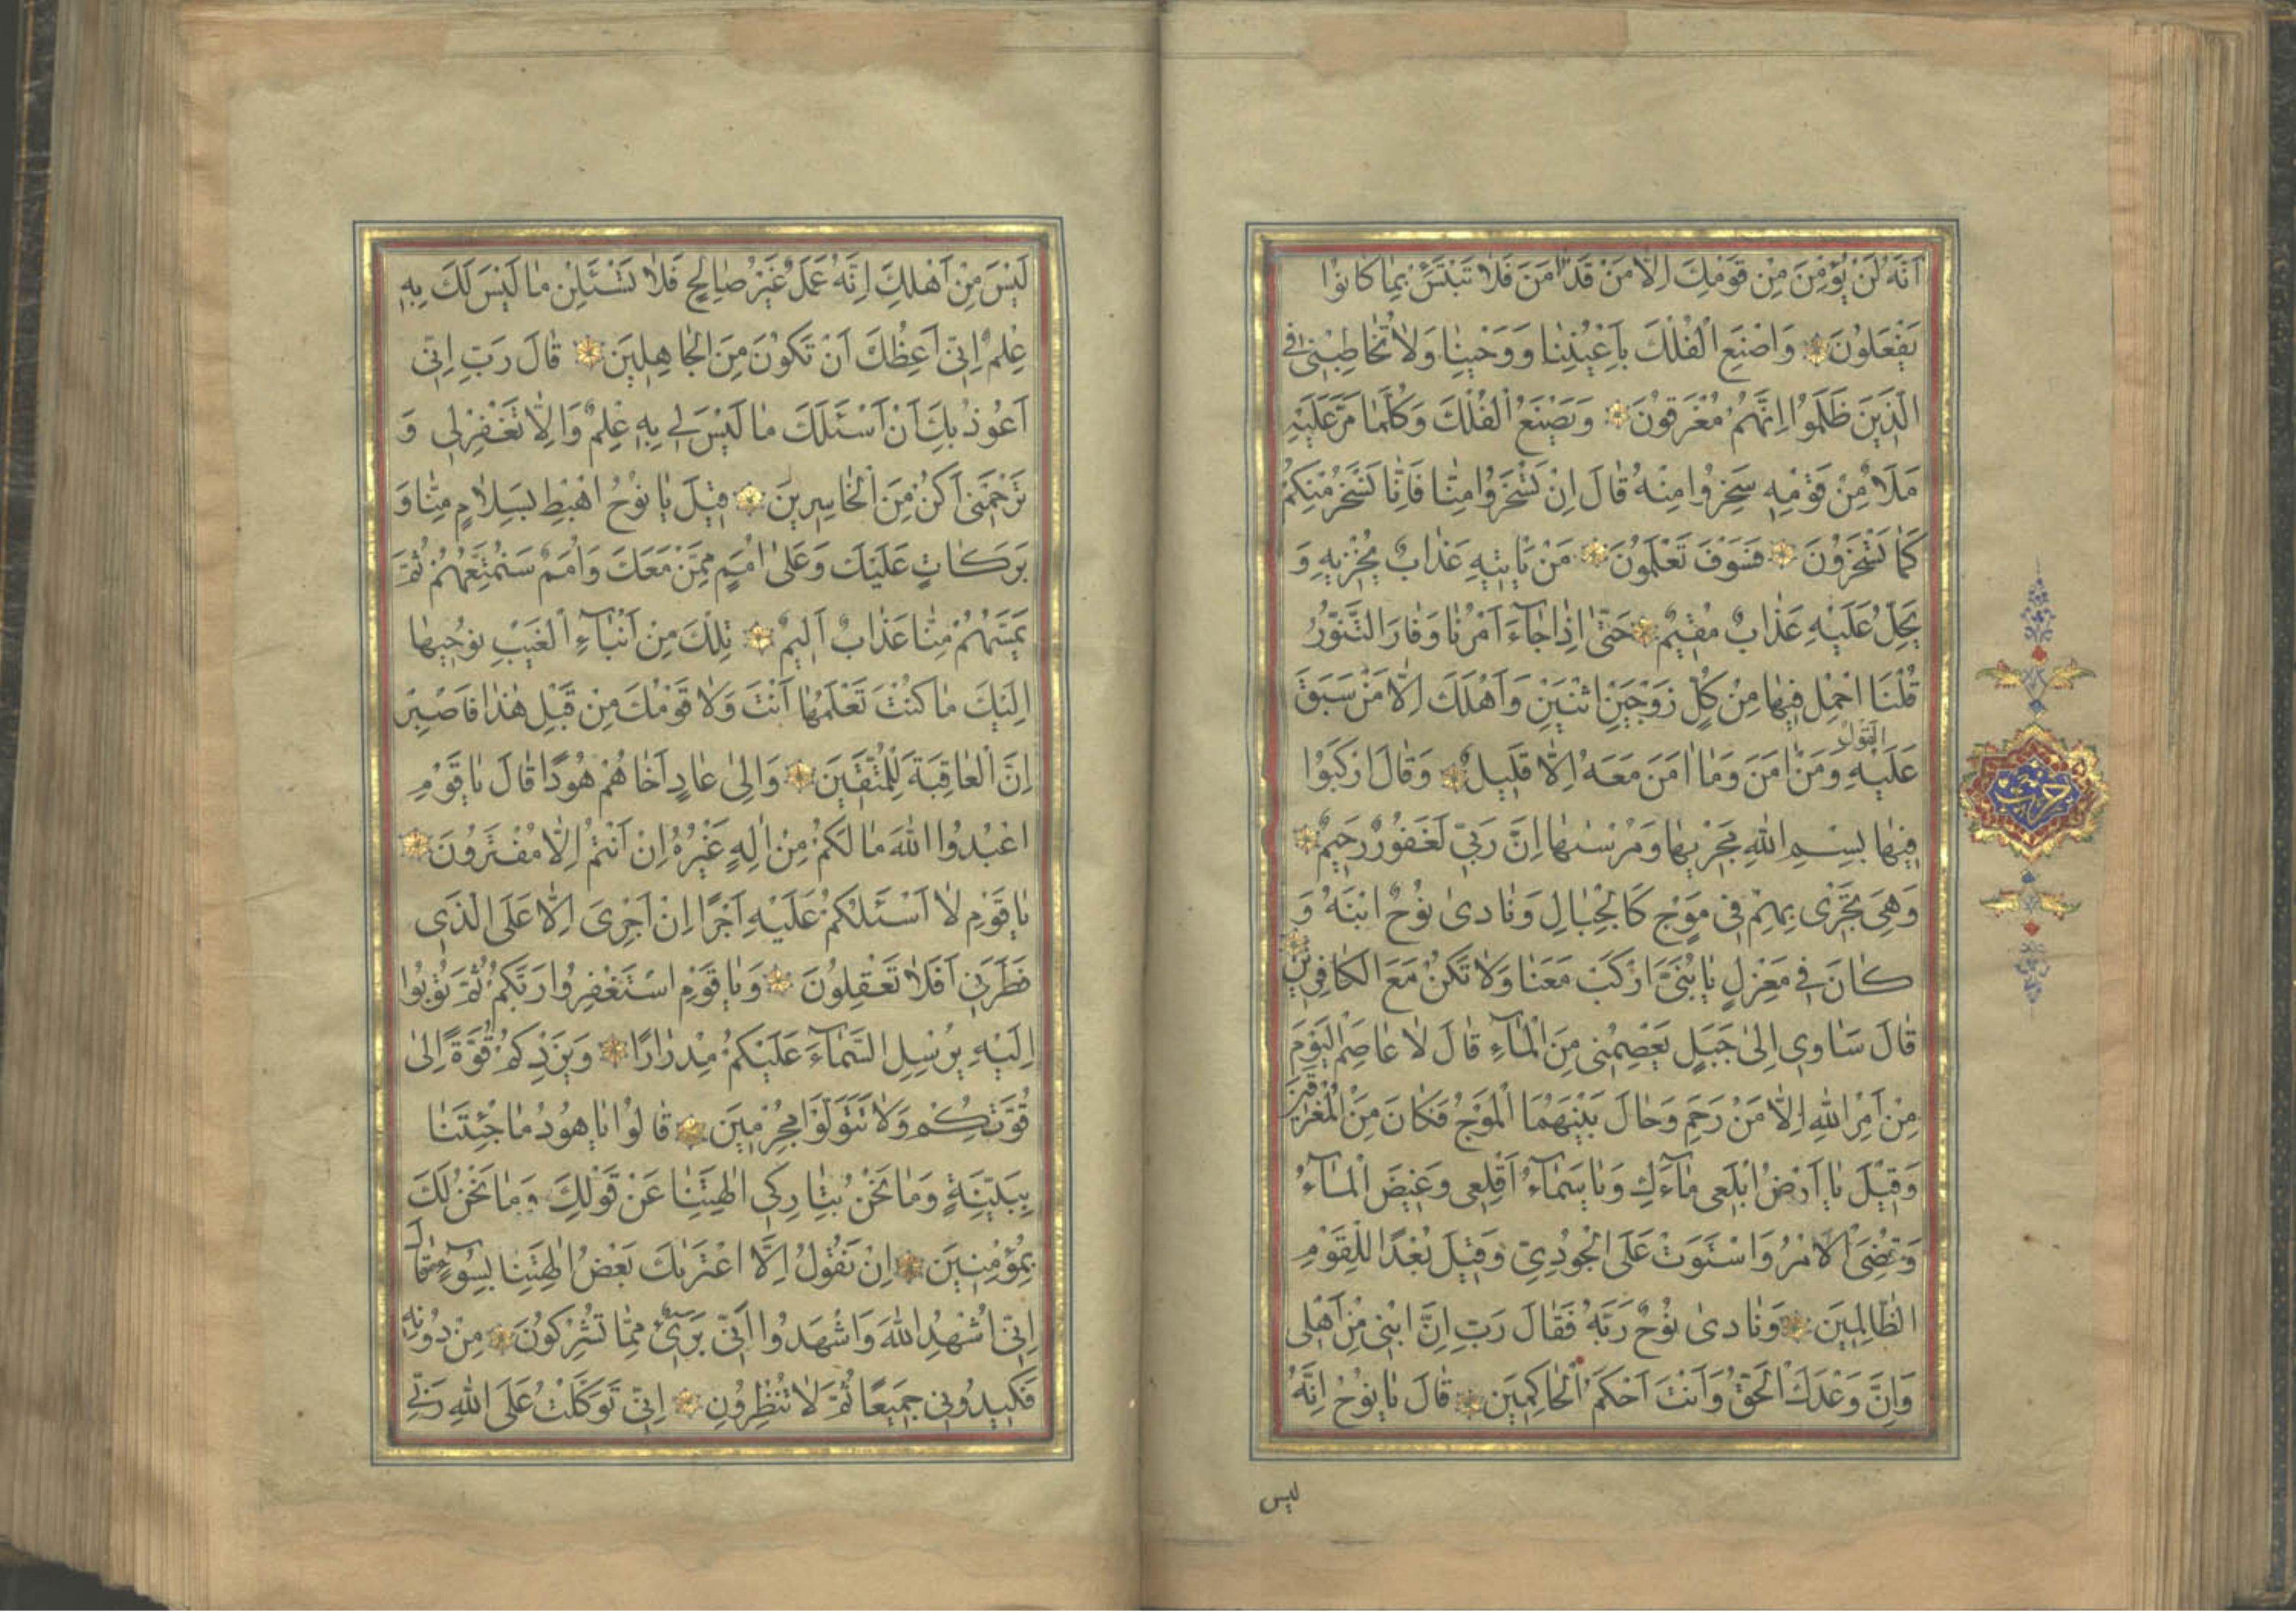 اَنَّهُ لَنْ يُؤْمِنَ مِنْ قَوْمِكَ اِلَّا مَنْ قَدْ اٰمَنَ فَلَا تَبْتَئِسْ بِمَا كَانُوا
يَفْعَلُونَ وَاصْنَعِ الْفُلْكَ بِاَعْيُنِنَا وَوَحْيِنَا وَلَا تُخَاطِبْنِى فِى
الَّذِينَ ظَلَمُوا اِنَّهُمْ مُغْرَقُونَ وَيَصْنَعُ الْفُلْكَ وَكُلَّمَا مَرَّ عَلَيْهِ
مَلَاٌ مِنْ قَوْمِهِ سَخِرُوا مِنْهُ قَالَ اِنْ تَسْخَرُوا مِنَّا فَاِنَّا نَسْخَرُ مِنْكُمْ
كَمَا تَسْخَرُونَ فَسَوْفَ تَعْلَمُونَ مَنْ يَاْتِيهِ عَذَابٌ يُخْزِيهِ وَ
يَحِلُّ عَلَيْهِ عَذَابٌ مُقِيمٌ حَتّٰى اِذَا جَآءَ اَمْرُنَا وَفَارَ التَّنُّورُ
قُلْنَا احْمِلْ فِيهَا مِنْ كُلٍّ زَوْجَيْنِ اثْنَيْنِ وَاَهْلَكَ اِلَّا مَنْ سَبَقَ
عَلَيْهِ الْقَوْلُ وَمَنْ اٰمَنَ وَمَا اٰمَنَ مَعَهُ اِلَّا قَلِيلٌ وَقَالَ ارْكَبُوا
فِيهَا بِسْمِ اللّٰهِ مَجْرٰيهَا وَمُرْسٰيهَا اِنَّ رَبِّى لَغَفُورٌ رَحِيمٌ
وَهِىَ تَجْرِى بِهِمْ فِى مَوْجٍ كَالْجِبَالِ وَنَادٰى نُوحٌ ابْنَهُ وَ
كَانَ فِى مَعْزِلٍ يَا بُنَىَّ ارْكَبْ مَعَنَا وَلَا تَكُنْ مَعَ الْكَافِرِينَ
قَالَ سَاٰوِى اِلٰى جَبَلٍ يَعْصِمُنِى مِنَ الْمَآءِ قَالَ لَا عَاصِمَ الْيَوْمَ
مِنْ اَمْرِ اللّٰهِ اِلَّا مَنْ رَحِمَ وَحَالَ بَيْنَهُمَا الْمَوْجُ فَكَانَ مِنَ الْمُغْرَقِينَ
وَقِيلَ يَا اَرْضُ ابْلَعِى مَآءَكِ وَيَا سَمَآءُ اَقْلِعِى وَغِيضَ الْمَآءُ
وَقُضِىَ الْاَمْرُ وَاسْتَوَتْ عَلَى الْجُودِىِّ وَقِيلَ بُعْدًا لِلْقَوْمِ
الظَّالِمِينَ وَنَادٰى نُوحٌ رَبَّهُ فَقَالَ رَبِّ اِنَّ ابْنِى مِنْ اَهْلِى
وَاِنَّ وَعْدَكَ الْحَقُّ وَاَنْتَ اَحْكَمُ الْحَاكِمِينَ قَالَ يَا نُوحُ اِنَّهُ
ليس
حزب
لَيْسَ مِنْ اَهْلِكَ اِنَّهُ عَمَلٌ غَيْرُ صَالِحٍ فَلَا تَسْئَلْنِ مَا لَيْسَ لَكَ بِهِ
عِلْمٌ اِنِّى اَعِظُكَ اَنْ تَكُونَ مِنَ الْجَاهِلِينَ قَالَ رَبِّ اِنِّى
اَعُوذُ بِكَ اَنْ اَسْئَلَكَ مَا لَيْسَ لِى بِهِ عِلْمٌ وَاِلَّا تَغْفِرْ لِى وَ
تَرْحَمْنِى اَكُنْ مِنَ الْخَاسِرِينَ قِيلَ يَا نُوحُ اهْبِطْ بِسَلَامٍ مِنَّا وَ
بَرَكَاتٍ عَلَيْكَ وَعَلٰى اُمَمٍ مِمَّنْ مَعَكَ وَاُمَمٌ سَنُمَتِّعُهُمْ ثُمَّ
يَمَسُّهُمْ مِنَّا عَذَابٌ اَلِيمٌ تِلْكَ مِنْ اَنْبَآءِ الْغَيْبِ نُوحِيهَا
اِلَيْكَ مَا كُنْتَ تَعْلَمُهَا اَنْتَ وَلَا قَوْمُكَ مِنْ قَبْلِ هٰذَا فَاصْبِرْ
اِنَّ الْعَاقِبَةَ لِلْمُتَّقِينَ وَاِلٰى عَادٍ اَخَاهُمْ هُودًا قَالَ يَا قَوْمِ
اعْبُدُوا اللّٰهَ مَا لَكُمْ مِنْ اِلٰهٍ غَيْرُهُ اِنْ اَنْتُمْ اِلَّا مُفْتَرُونَ
يَا قَوْمِ لَا اَسْئَلُكُمْ عَلَيْهِ اَجْرًا اِنْ اَجْرِىَ اِلَّا عَلَى الَّذِى
فَطَرَنِى اَفَلَا تَعْقِلُونَ وَيَا قَوْمِ اسْتَغْفِرُوا رَبَّكُمْ ثُمَّ تُوبُوا
اِلَيْهِ يُرْسِلِ السَّمَآءَ عَلَيْكُمْ مِدْرَارًا وَيَزِدْكُمْ قُوَّةً اِلٰى
قُوَّتِكُمْ وَلَا تَتَوَلَّوْا مُجْرِمِينَ قَالُوا يَا هُودُ مَا جِئْتَنَا
بِبَيِّنَةٍ وَمَا نَحْنُ بِتَارِكِى اٰلِهَتِنَا عَنْ قَوْلِكَ وَمَا نَحْنُ لَكَ
بِمُؤْمِنِينَ اِنْ نَقُولُ اِلَّا اعْتَرٰيكَ بَعْضُ اٰلِهَتِنَا بِسُوٓءٍ قَالَ
اِنِّى اُشْهِدُ اللّٰهَ وَاشْهَدُوا اَنِّى بَرِىٓءٌ مِمَّا تُشْرِكُونَ مِنْ دُونِهِ
فَكِيدُونِى جَمِيعًا ثُمَّ لَا تُنْظِرُونِ اِنِّى تَوَكَّلْتُ عَلَى اللّٰهِ رَبِّى